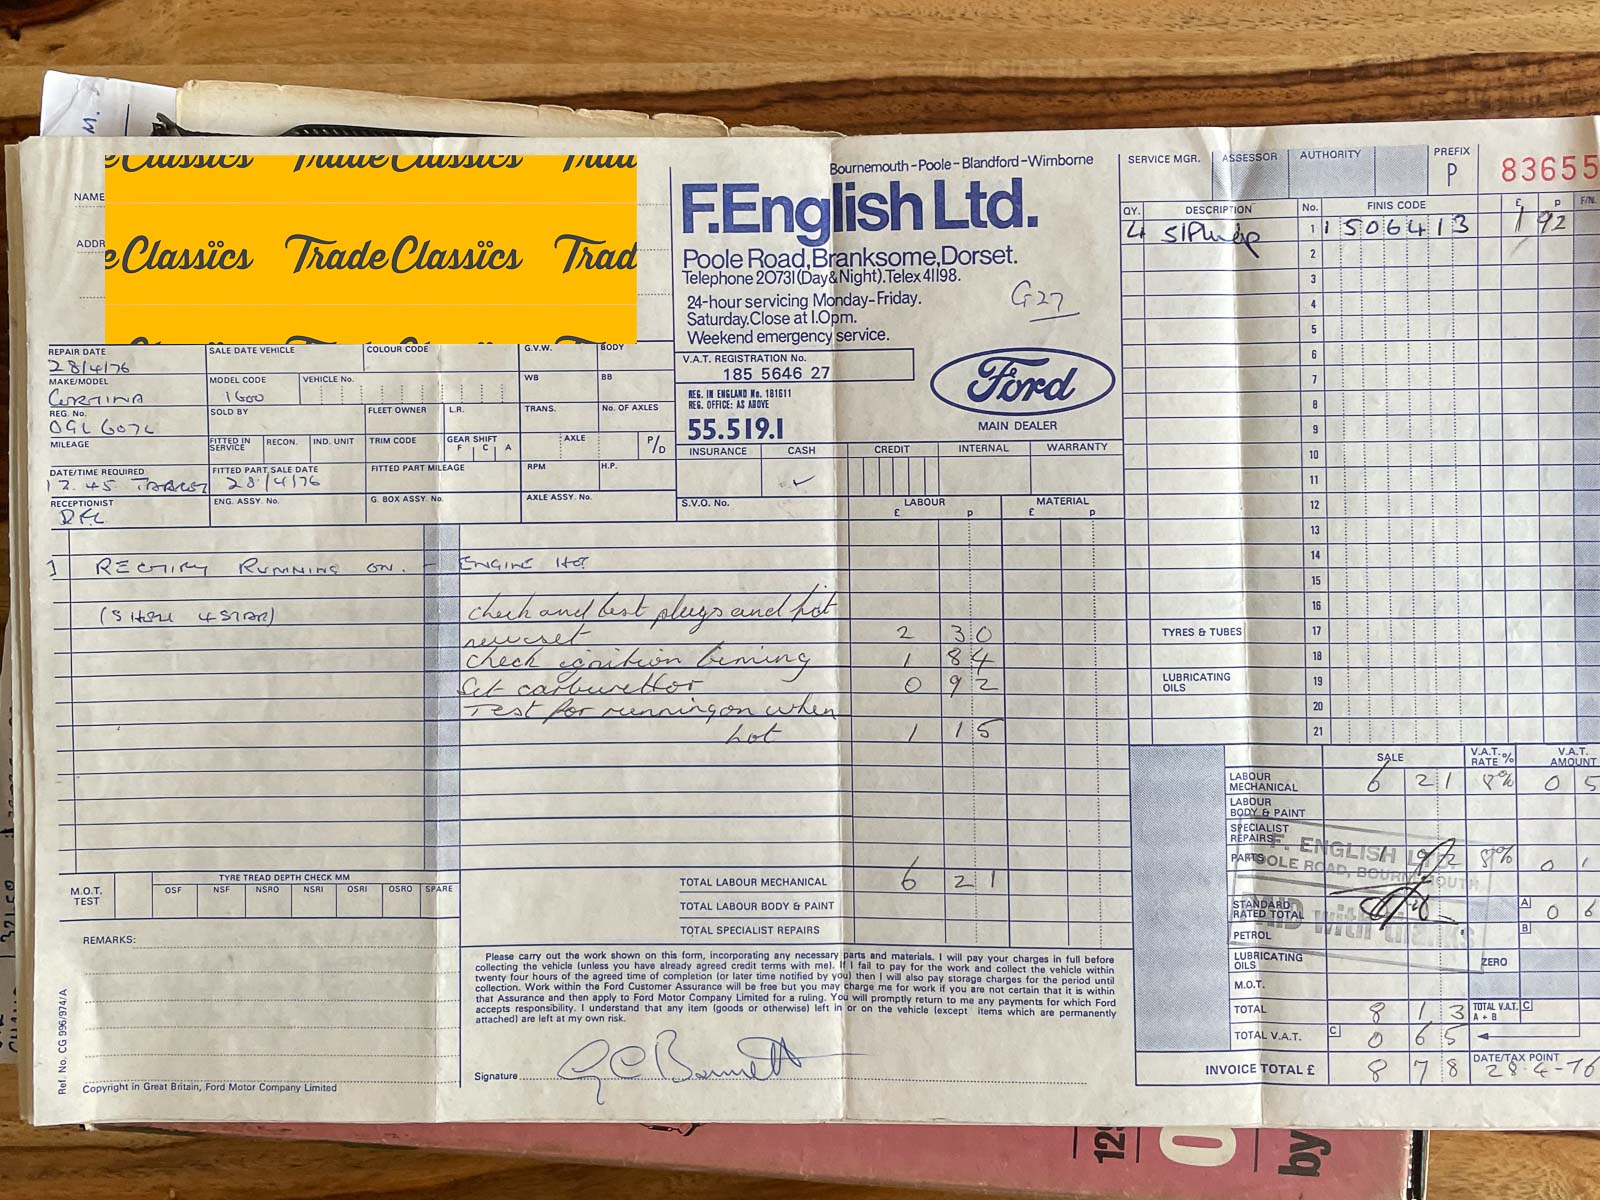 e Classïcs Trade Classïcs Trad
NAME
ADDR
e Classïcs Trade Classïcs Trad
Bournemouth-Poole-Blandford-Wimborne
F.English Ltd.
Poole Road, Branksome, Dorset.
Telephone 20731 (Day & Night). Telex 41198.
24-hour servicing Monday-Friday.
Saturday. Close at 1.0pm.
Weekend emergency service.
G27
V.A.T. REGISTRATION No.
185 5646 27
REG. IN ENGLAND No. 181611
REG. OFFICE: AS ABOVE
55.519.1
Ford
MAIN DEALER
INSURANCE CASH CREDIT INTERNAL WARRANTY
S.V.O. No. LABOUR MATERIAL
£ p £ p
SERVICE MGR. ASSESSOR AUTHORITY PREFIX
P 83655
QY. DESCRIPTION No. FINIS CODE £ p F/N.
4 1 1506413 1 92
2
3
4
5
6
7
8
9
10
11
12
13
14
15
16
TYRES & TUBES 17
18
LUBRICATING OILS 19
20
21
REPAIR DATE SALE DATE VEHICLE COLOUR CODE G.V.W. BODY
28/4/76
MAKE/MODEL MODEL CODE VEHICLE No. WB BB
CORTINA 1600
REG. No. SOLD BY FLEET OWNER L.R. TRANS. No. OF AXLES
OGL 607L
MILEAGE FITTED IN SERVICE RECON. IND. UNIT TRIM CODE GEAR SHIFT F C A AXLE P/D
DATE/TIME REQUIRED FITTED PART SALE DATE FITTED PART MILEAGE RPM H.P.
12.45 28/4/76
RECEPTIONIST ENG. ASSY. No. G. BOX ASSY. No. AXLE ASSY. No.
1 RECTIFY RUNNING ON. - ENGINE HOT
(SHELL 4 STAR) check and test plugs and fit
new set 2 30
check ignition timing 1 84
Set carburettor 0 92
Test for running on when
hot 1 15
TYRE TREAD DEPTH CHECK MM
M.O.T. TEST OSF NSF NSRO NSRI OSRI OSRO SPARE
TOTAL LABOUR MECHANICAL 6 21
TOTAL LABOUR BODY & PAINT
TOTAL SPECIALIST REPAIRS
REMARKS:
Please carry out the work shown on this form, incorporating any necessary parts and materials. I will pay your charges in full before
collecting the vehicle (unless you have already agreed credit terms with me). If I fail to pay for the work and collect the vehicle within
twenty four hours of the agreed time of completion (or later time notified by you) then I will also pay storage charges for the period until
collection. Work within the Ford Customer Assurance will be free but you may charge me for work if you are not certain that it is within
that Assurance and then apply to Ford Motor Company Limited for a ruling. You will promptly return to me any payments for which Ford
accepts responsibility. I understand that any item (goods or otherwise) left in or on the vehicle (except items which are permanently
attached) are left at my own risk.
Signature
Copyright in Great Britain, Ford Motor Company Limited
Ref. No. CG 996/974/A
SALE V.A.T. RATE % V.A.T. AMOUNT
LABOUR MECHANICAL 6 21 8% 0 5
LABOUR BODY & PAINT
SPECIALIST REPAIRS
PARTS 1 92 8% 0 1
STANDARD RATED TOTAL A 0 6
PETROL B
LUBRICATING OILS ZERO
M.O.T.
TOTAL 8 13 TOTAL V.A.T. A + B C
TOTAL V.A.T. C 0 65
INVOICE TOTAL £ 8 78 DATE/TAX POINT 28-4-76
F. ENGLISH LTD.
POOLE ROAD, BOURNEMOUTH
PAID with thanks
129
O
by